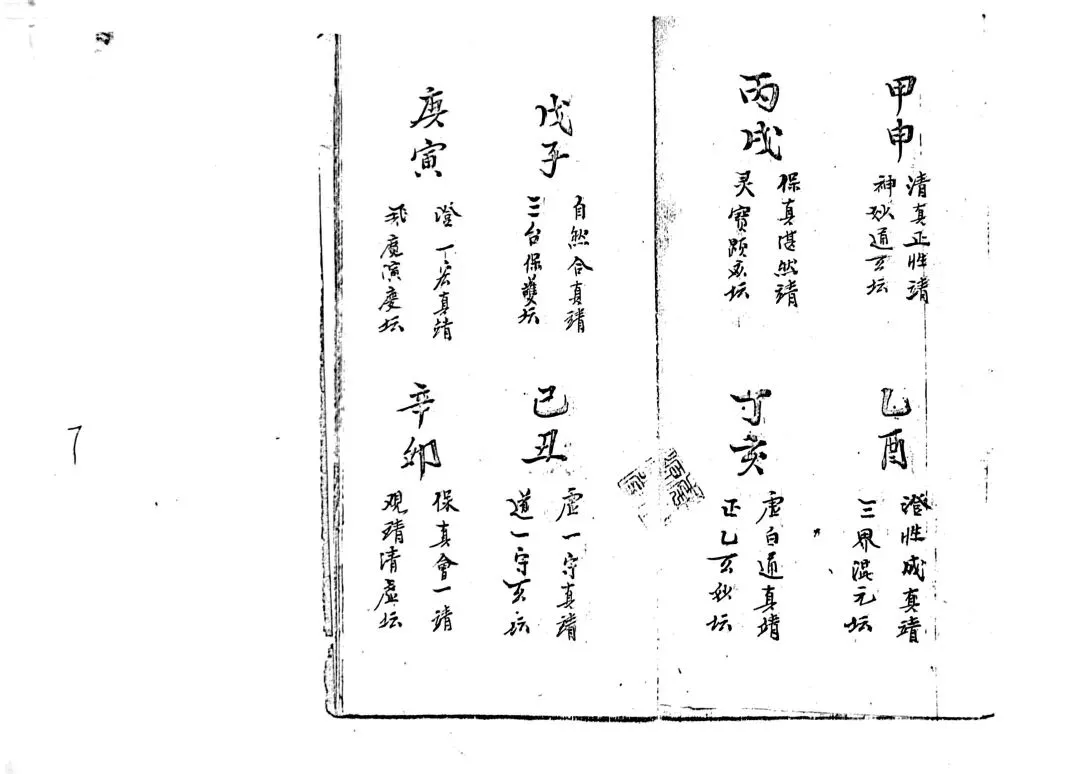 甲申
清真正性靖
神妙通玄坛
乙酉
澄性成真靖
三界混元坛
丙戌
保真湛然靖
灵宝 坛
丁亥
虚白通真靖
正乙玄妙坛
戊子
自然合真靖
三台保護坛
己丑
虚一守真靖
道一守玄坛
庚寅
澄一宏真靖
演慶坛
辛卯
保真會一靖
观靖清虚坛
7